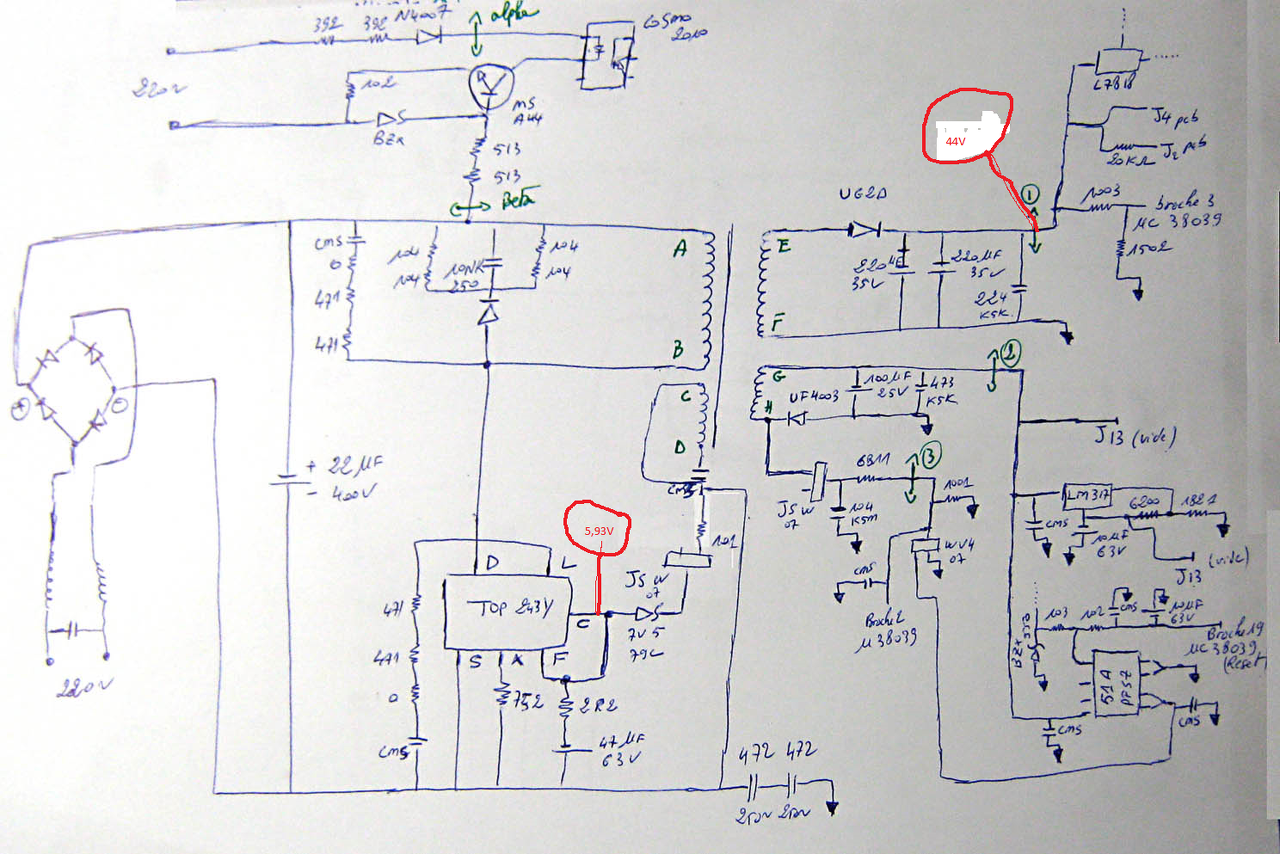 392 392 N4007
alpha
COSMO
2010
220V
102
BZX
MS
A44
513
513
Beta
44V
L7818
J4 pcb
J2 pcb
20KΩ
1003
broche 3
µC 38039
1502
UG2D
1
220µF
35V
220µF
35V
224
K5K
A
B
C
D
E
F
G
H
cms
0
471
471
104
104
10NK
250
104
104
+ 22µF
- 400V
220V
5,93V
D
L
TOP 243Y
C
S
X
F
471
471
0
cms
752
2R2
47µF
63V
7V5
79C
J5 W
07
101
cms
472 472
250V 250V
UF4003
100µF
25V
473
K5K
2
J13 (vide)
J5 W
07
6811
3
1001
104
K5M
WV4
07
cms
Broche 2
µ 38039
LM317
cms
10µF
63V
6200
1821
J13
(vide)
BZX
103
102
cms
10µF
63V
Broche 19
µC 38039
(Reset)
51A
cms
cms